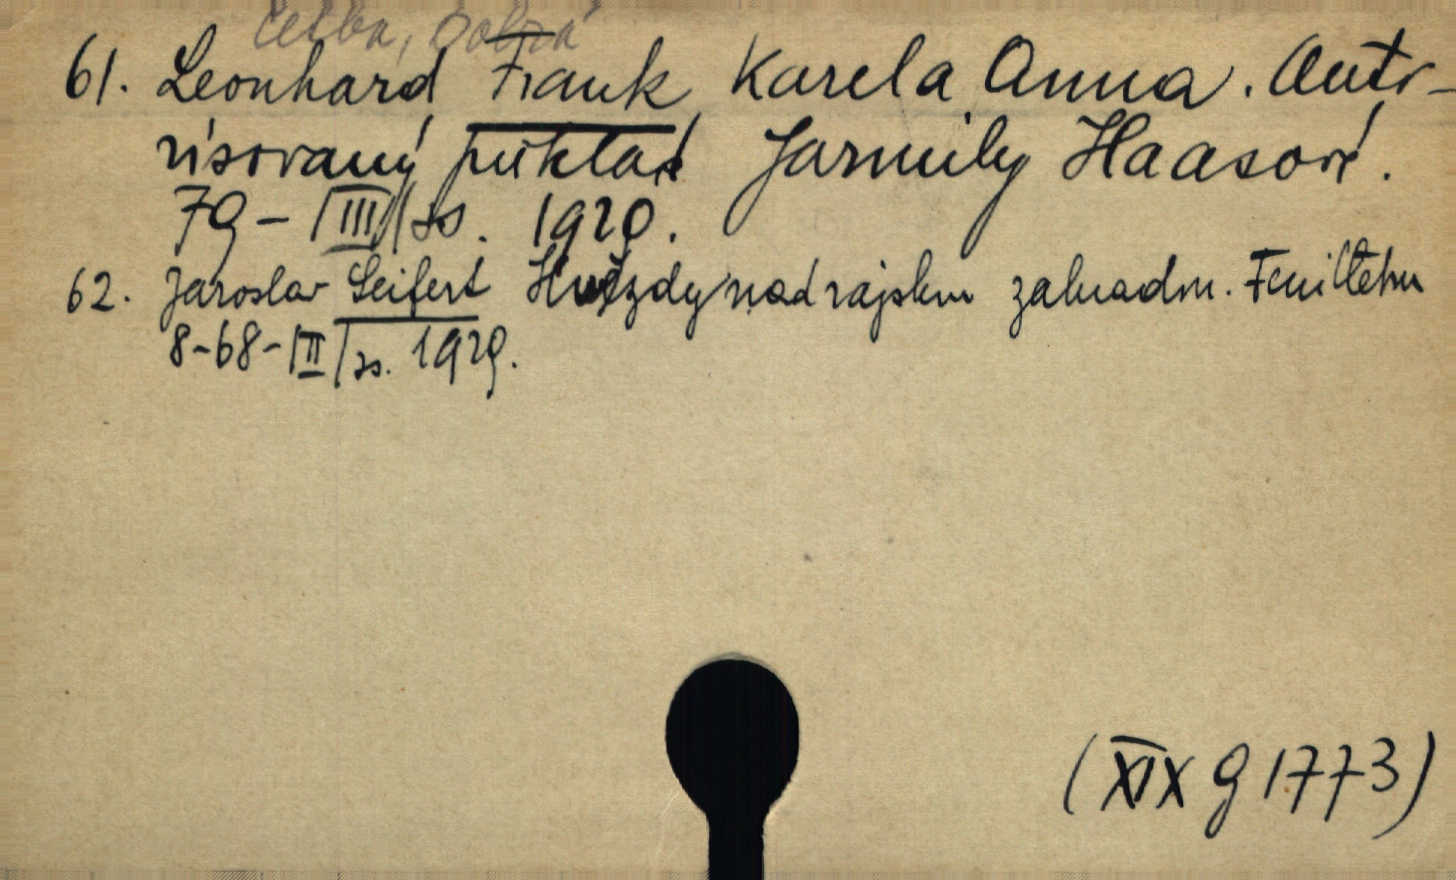 četba, Dobrá
61. Leonhard Frank Karela Anna. Auto-
risovaný překlad Jarmily Haasové.
79-|III|ss. 1929.
62. Jaroslav Seifert Hvězdy nad rajskou zahradou. Feuilletony
8-68-|II|ss. 1929.
(XIX g 1773)